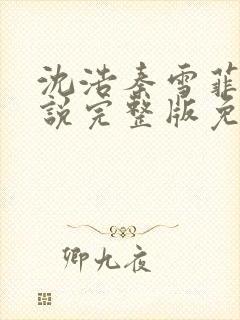 沈浩秦雪菲
說完整版免
卿九夜